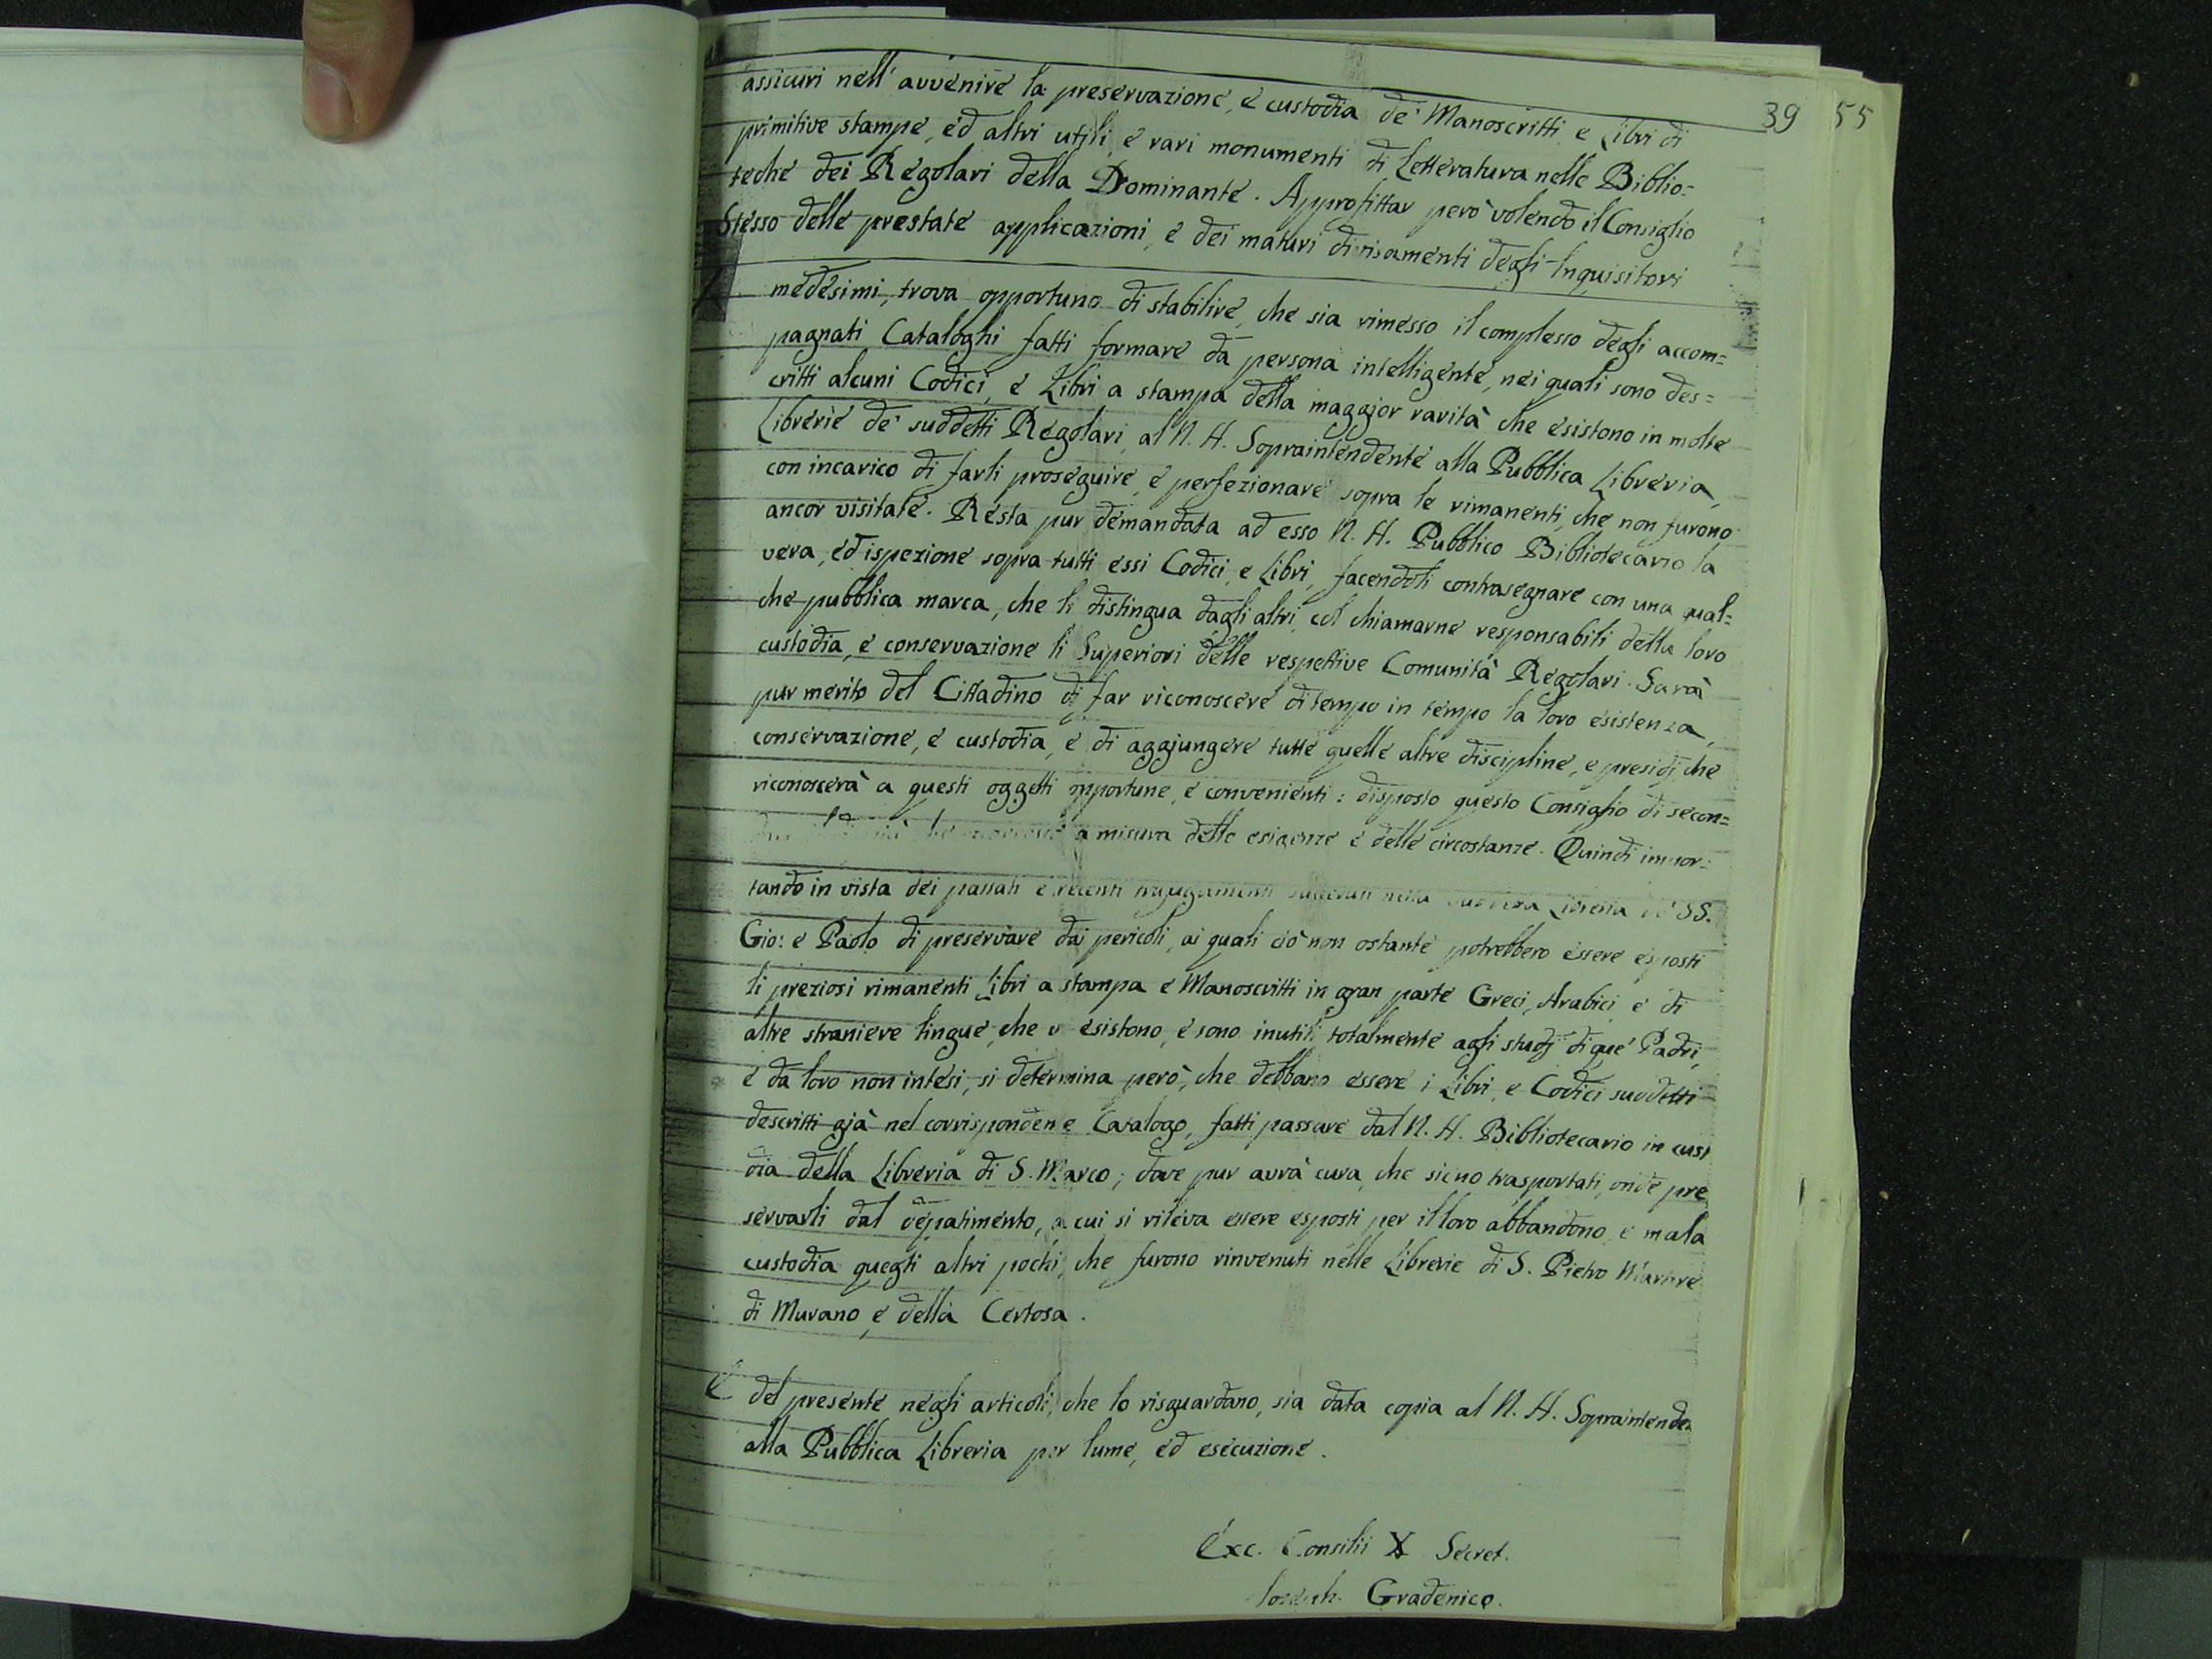 39 55
assicuri nell' avvenire la preservazione, e custodia de' Manoscritti, e Libri di
primitive stampe, ed altri utili, e rari monumenti di Letteratura nelle Biblio=
teche dei Regolari della Dominante. Approfittar però volendo il Consiglio
Stesso delle prestate applicazioni, e dei maturi divisamenti degli Inquisitori
medesimi, trova opportuno di stabilire, che sia rimesso il complesso degli accom=
pagnati Cataloghi fatti formare da persona intelligente, nei quali sono des=
critti alcuni Codici, e Libri a stampa della maggior rarità che esistono in molte
Librerie de' suddetti Regolari, al N. H. Sopraintendente alla Pubblica Libreria,
con incarico di farli proseguire, e perfezionare sopra le rimanenti, che non furono
ancor visitate. Resta pur demandata ad esso N. H. Pubblico Bibliotecario la
vera, ed ispezione sopra tutti essi Codici, e Libri, facendoli contrasegnare con una qual=
che pubblica marca, che li distingua dagli altri, col chiamarne responsabili della loro
custodia, e conservazione li Superiori delle respettive Comunità Regolari. Sarà
pur merito del Cittadino di far riconoscere di tempo in tempo la loro esistenza,
conservazione, e custodia, e di aggiungere tutte quelle altre discipline, e presidj, che
riconoscerà a questi oggetti opportune, e convenienti: disposto questo Consiglio di secon=
a misura delle esigenze e delle circostanze. Quindi impor=
tando in vista dei passati e recenti nella Libreria de' SS.
Gio: e Paolo di preservare dai pericoli, ai quali ciò non ostante potrebbero essere esposti
li preziosi rimanenti Libri a stampa e Manoscritti in gran parte Greci, Arabici, e di
altre straniere lingue, che vi esistono, e sono inutili totalmente agli studj di que' Padri,
e da loro non intesi, si determina però, che debbano essere i Libri, e Codici suddetti
descritti già nel corrispondente Catalogo, fatti passare dal N. H. Bibliotecario in cust
dia della Libreria di S. Marco; dove pur avrà cura, che sieno trasportati, onde pre
servarli dal depatimento, a cui si rileva essere esposti per il loro abbandono, e mala
custodia quegli altri pochi, che furono rinvenuti nelle Librerie di S. Pietro Martire
di Murano, e della Certosa.
E del presente negli articoli, che lo risguardano, sia data copia al N. H. Sopraintenden
alla Pubblica Libreria per lume, ed esecuzione.
Exc. Consilii X Secret.
Joseph. Gradenico.